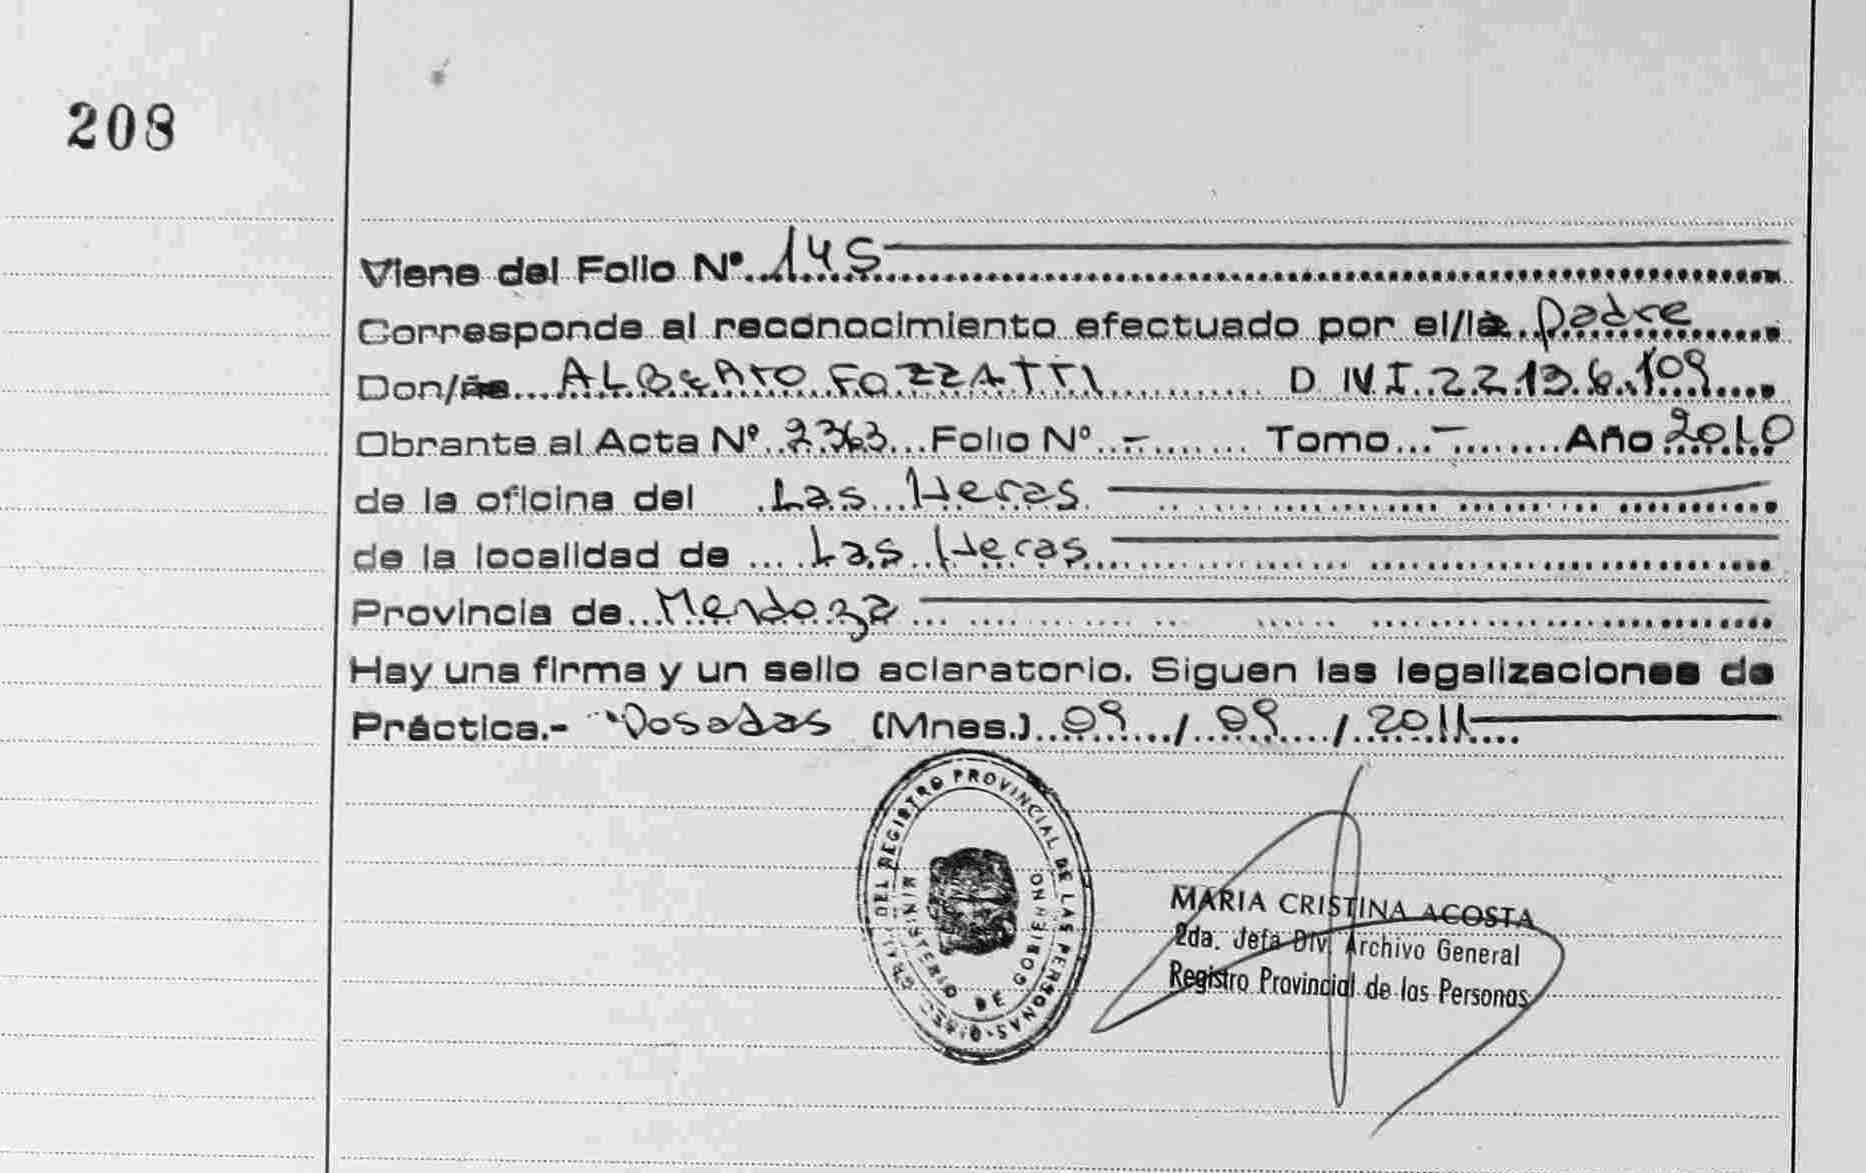 208
Viene del Folio Nº 145
Corresponde al reconocimiento efectuado por el/la padre
Don/ña ALBERTO FOZZATTI D N I 22.136.109
Obrante al Acta Nº 2363 Folio Nº - Tomo - Año 2010
de la oficina del Las Heras
de la localidad de Las Heras
Provincia de Mendoza
Hay una firma y un sello aclaratorio. Siguen las legalizaciones de
Práctica.- Posadas (Mnes.) 09 / 09 / 2011
DEL REGISTRO PROVINCIAL DE LAS PERSONAS
MINISTERIO DE GOBIERNO
MARIA CRISTINA ACOSTA
2da. Jefa Div. Archivo General
Registro Provincial de las Personas